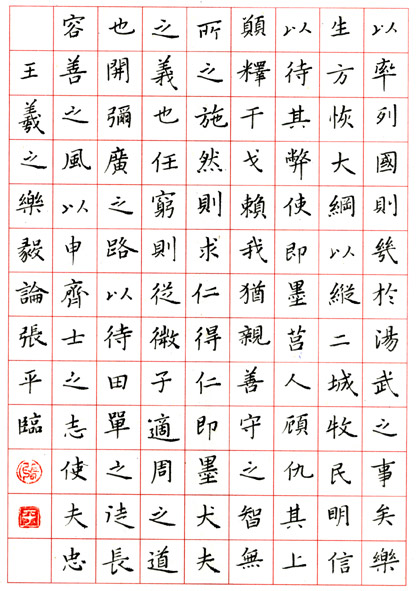 以率列國則幾於湯武之事矣樂
生方恢大綱以縱二城牧民明信
以待其弊使即墨莒人顧仇其上
願釋干戈賴我猶親善守之智無
所之施然則求仁得仁即墨犬夫
之義也任窮則從微子適周之道
也開彌廣之路以待田單之徒長
容善之風以申齊士之志使夫忠
王羲之樂毅論張平臨